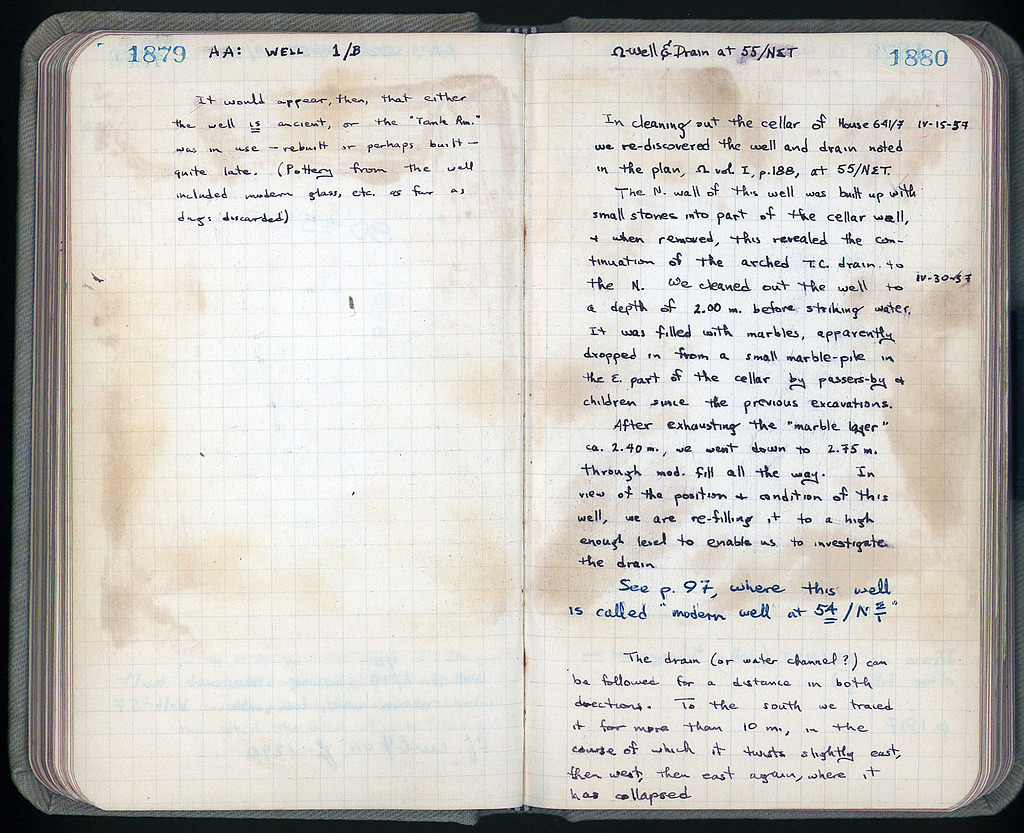 1879 AA: WELL 1/B
It would appear, then, that either
the well is ancient, or the "Tank Rm."
was in use — rebuilt or perhaps built —
quite late. (Pottery from the well
included modern glass, etc. as far as
dug: discarded)
Ω Well & Drain at 55/ΝΣΤ 1880
In cleaning out the cellar of House 641/7 IV-15-57
we re-discovered the well and drain noted
in the plan, Ω vol. I, p.188, at 55/ΝΣΤ.
The N. wall of this well was built up with
small stones into part of the cellar wall,
+ when removed, this revealed the con-
tinuation of the arched T.C. drain to
the N. We cleaned out the well to IV-30-57
a depth of 2.00 m. before striking water.
It was filled with marbles, apparently
dropped in from a small marble-pile in
the E. part of the cellar by passers-by +
children since the previous excavations.
After exhausting the "marble layer"
ca. 2.40 m., we went down to 2.75 m.
through mod. fill all the way. In
view of the position + condition of this
well, we are re-filling it to a high
enough level to enable us to investigate
the drain
See p. 97, where this well
is called "modern well at 54/Ν
The drain (or water channel?) can
be followed for a distance in both
directions. To the south we traced
it for more than 10 m., in the
course of which it twists slightly east,
then west, then east again, where it
has collapsed